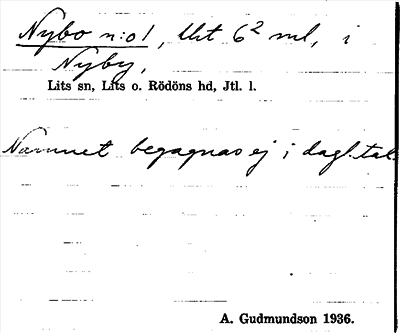 Nybo n:o 1, litt 6² ml, i
Nyby,
Lits sn, Lits o. Rödöns hd, Jtl. l.
Namnet begagnas ej i dagl. tal.
A. Gudmundson 1936.